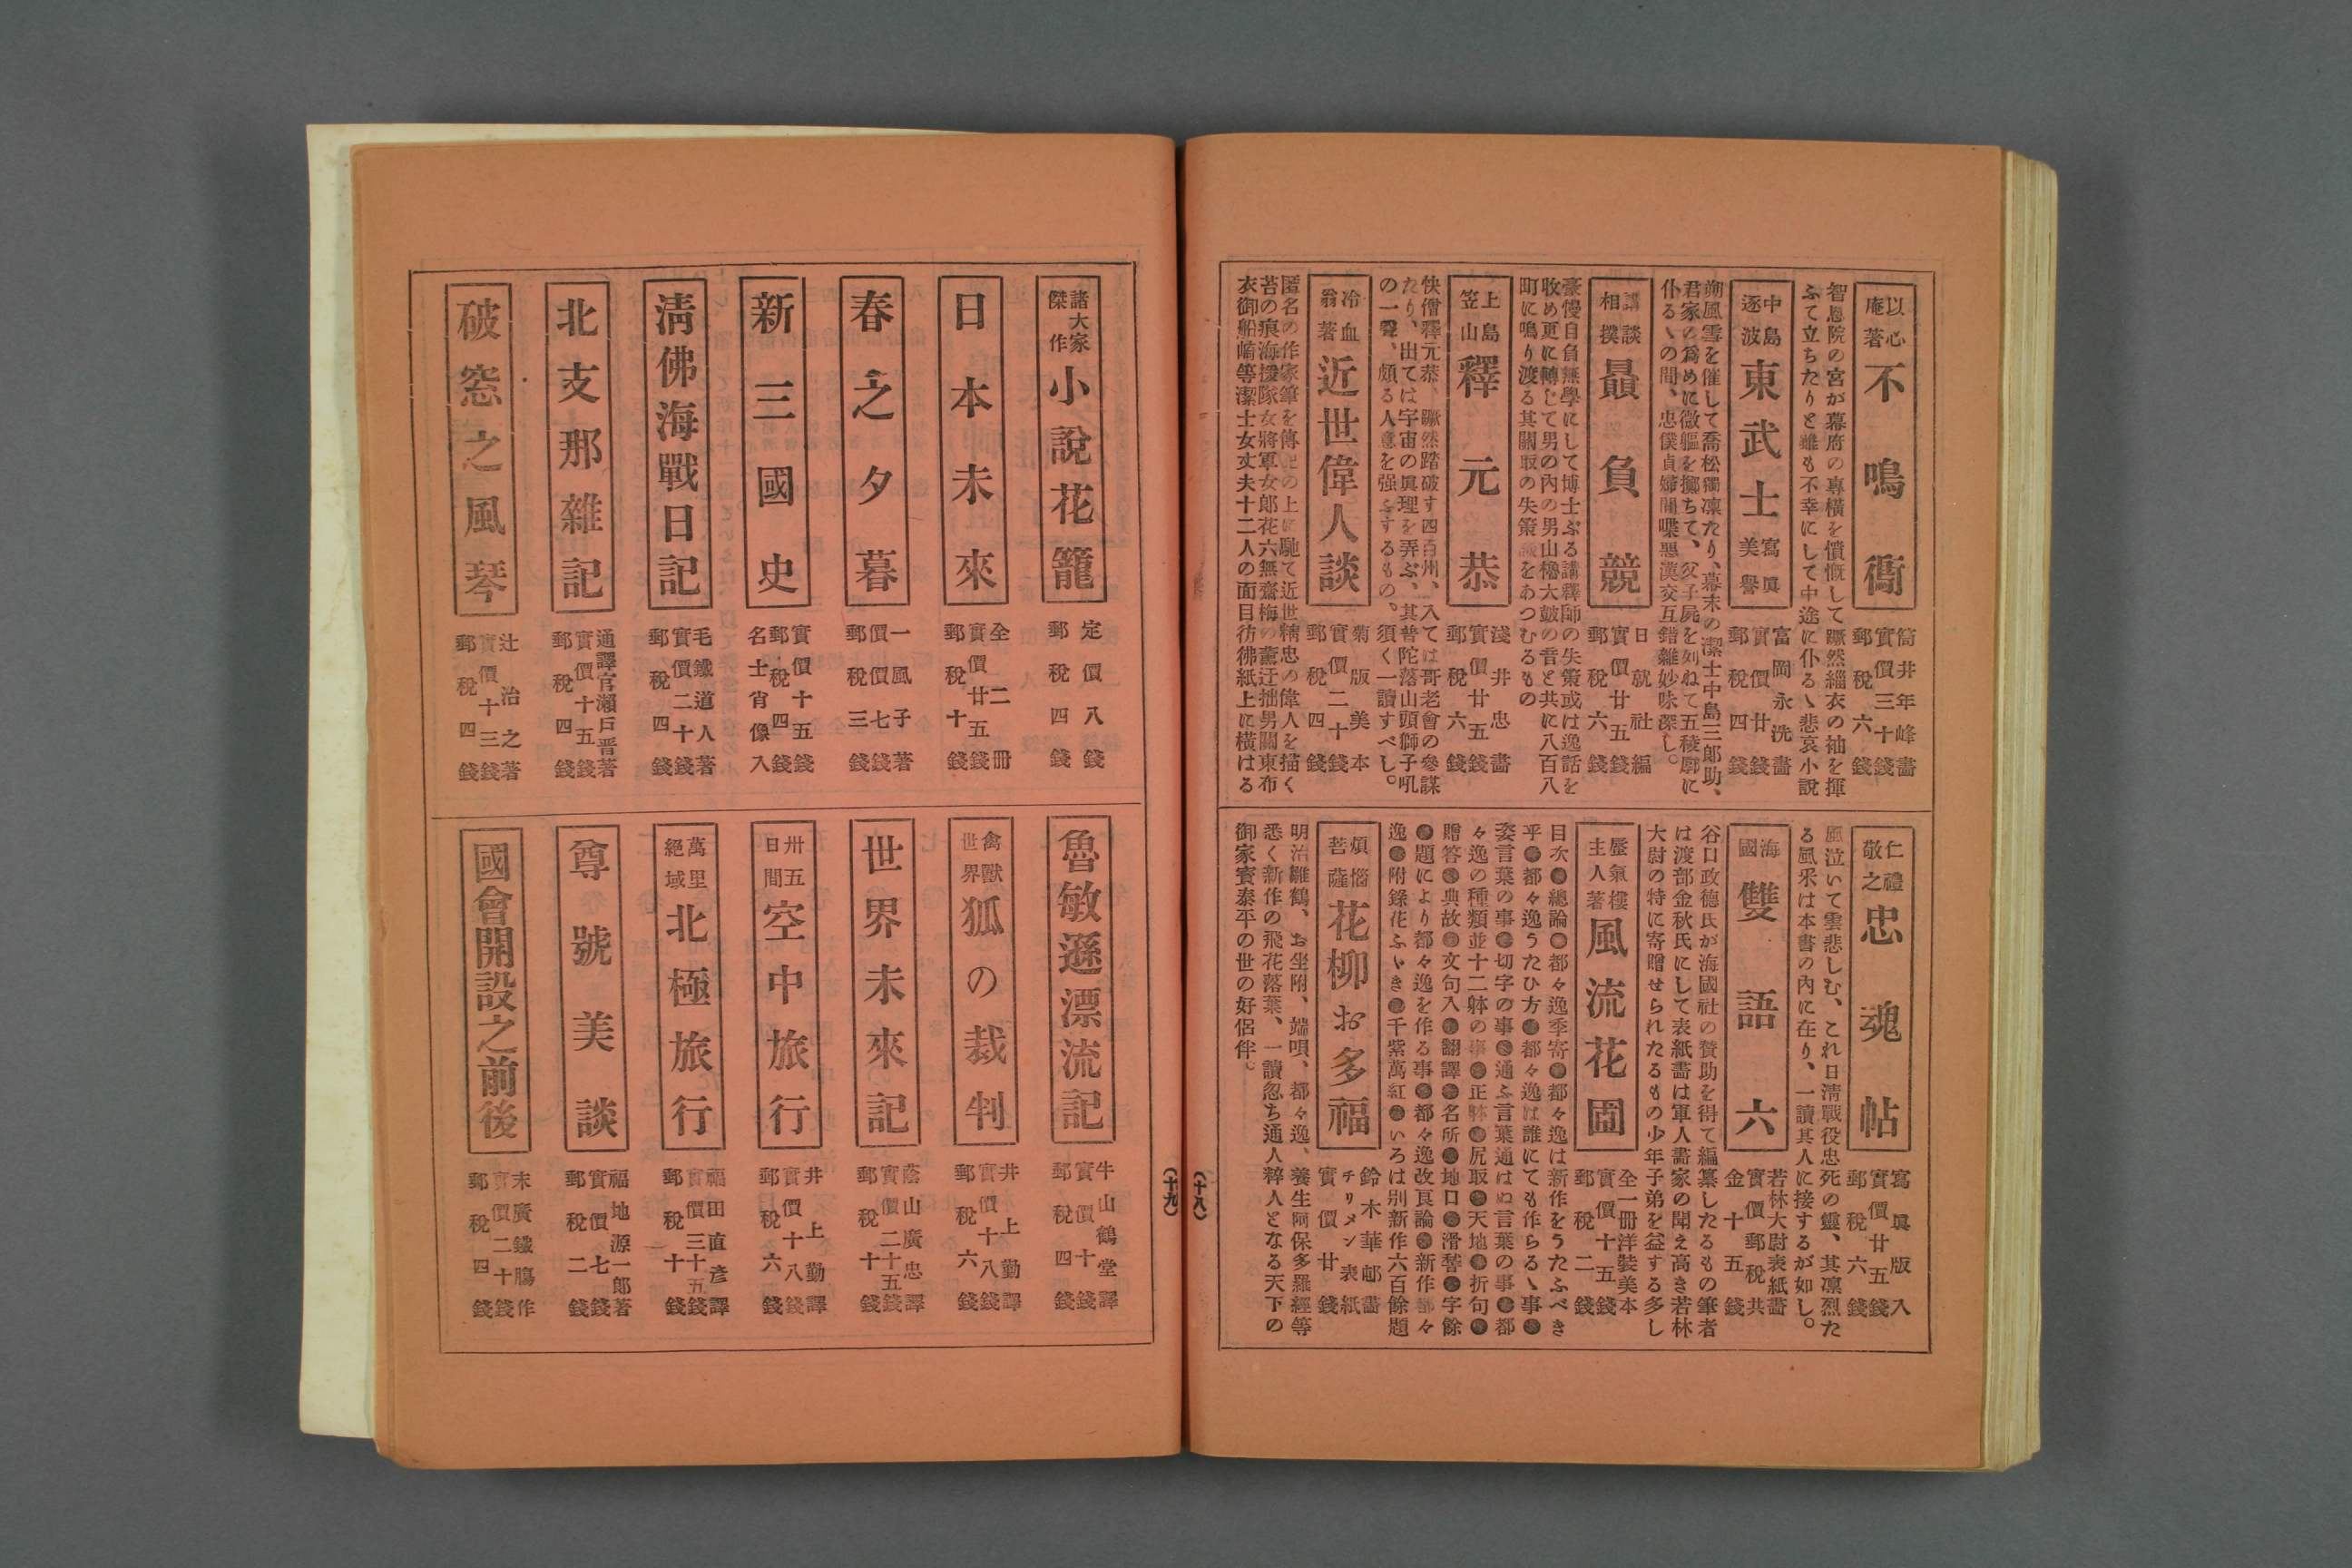 以心庵著
不鳴衙
筒井年峰畵
實價三十錢
郵税六錢
智恩院の宮が幕府の專横を憤慨して蹶然緇衣の袖を揮
ふて立ちたりと雖も不幸にして中途に仆るゝ悲哀小説
中島逐波
東武士
寫眞美譽
富岡永洗畵
實價廿錢
郵税四錢
朔風雪を催して喬松獨凛たり、幕末の潔士中島三郎助、
君家の爲めに微軀を擲ちて、父子屍を列ねて五稜廓に
仆るゝの間、忠僕貞婦閨喋惡漢交互錯雜妙味深し。
講談相撲
贔負競
日就社編
實價廿五錢
郵税六錢
豪慢自負無學にして博士ぶる講釋師の失策或は逸話を
收め更に轉じて男の内の男山櫓大皷の音と共に八百八
町に鳴り渡る其關取の失策をあつむるもの
上島笠山
釋元恭
淺井忠畵
實價廿五錢
郵税六錢
快僧釋元恭、蹶然踏破す四百州、入ては哥老會の參謀
たり、出ては宇宙の眞理を弄ぶ、其普陀落山頭獅子吼
の一聲、頗る人意を强くするもの、須く一讀すべし。
冷血翁著
近世偉人談
菊版美本
實價二十錢
郵税四錢
匿名の作家筆を傳記の上に馳て近世精忠の偉人を描く
苔の痕海援隊女將軍女郎花六無齋梅の薰迂拙男關東布
衣御船崎等潔士女丈夫十二人の面目彷彿紙上に横はる
仁禮敬之
忠魂帖
寫眞版入
實價廿五錢
郵税六錢
風泣いて雲悲しむ、これ日淸戰役忠死の靈、其凛烈た
る風釆は本書の内に在り、一讀其人に接するが如し。
海國
雙語六
若林大尉表紙畵
實價郵税共
金十五錢
谷口政德氏が海國社の賛助を得て編纂したるもの筆者
は渡部金秋氏にして表紙畵は軍人畵家の聞え高き若林
大尉の特に寄贈せられたるもの少年子弟を益する多し
蜃氣樓主人著
風流花圃
全一冊洋裝美本
實價十五錢
郵税二錢
目次●總論●都々逸季寄●都々逸は新作をうたふべき
乎●都々逸うたひ方●都々逸は誰にても作らるゝ事●
委言葉の事●切字の事●通ふ言葉通はぬ言葉の事●都
々逸の種類並十二躰の事●正躰●尻取●天地●折句●
贈答●典故●文句入●飜譯●名所●地口●滑替●字餘
●題により都々逸を作る事●都々逸改良論●新作都々
逸●附錄花ふゞき●千紫萬紅●いろは別新作六百餘題
煩惱菩薩
花柳お多福
鈴木華邨畵
チリメン表紙
實價廿錢
明治雛鶴、お坐附、端唄、都々逸、養生阿保多羅經等
悉く新作の飛花落葉、一讀忽ち通人粹人となる天下の
御家寳泰平の世の好侶伴。
(十八)
諸大家傑作
小說花籠
定價八錢
郵税四錢
日本未來
全二冊
實價廿五錢
郵税十錢
春之夕暮
一風子著
價價七錢
郵税三錢
新三國史
實價十五錢
郵税四錢
名士肖像入
淸佛海戰日記
毛鐵道人著
實價二十錢
郵税四錢
北支那雜記
通譯官瀨戸晋著
實價十五錢
郵税四錢
破窓之風琴
辻治之著
實價十三錢
郵税四錢
魯敏遜漂流記
牛山鶴堂譯
實價十錢
郵税四錢
禽獸世界
狐の裁判
井上勤譯
實價十八錢
郵税六錢
世界未來記
蔭山廣忠譯
實價二十五錢
郵税十錢
卅五日間
空中旅行
井上勤譯
實價十八錢
郵税六錢
萬里絕域
北極旅行
福田直彥譯
實價三十五錢
郵税十錢
尊號美談
福地源一郎著
實價七錢
郵税二錢
國會開設之前後
末廣鐵膓作
實價二十錢
郵税四錢
(十九)